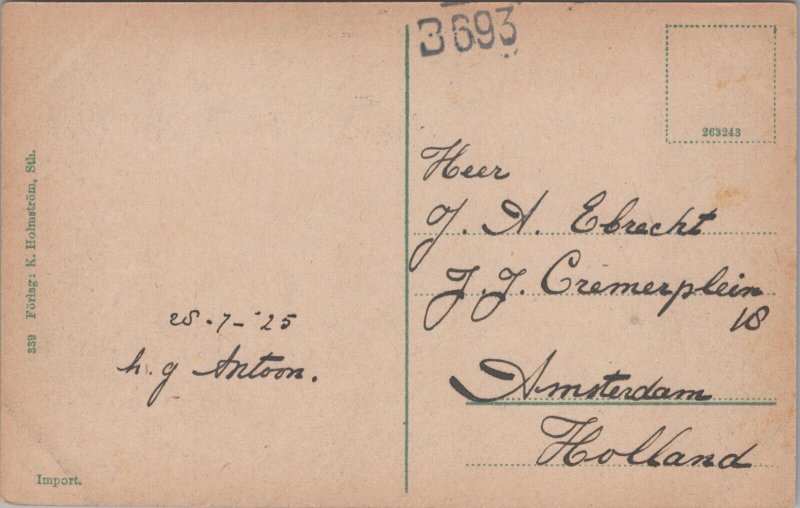 3693
263243
Heer
J. A. Ebrecht
J. J. Cremerplein
18
Amsterdam
Holland
28-7-'25
h. g Antoon.
339 Förlag: K. Holmström, Sth.
Import.